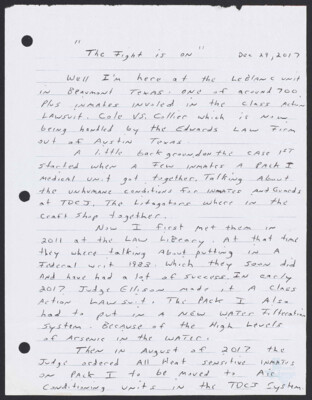 "The Fight is on" Dec 29, 2017
Well I'm here at the LeBlanc unit
in Beaumont Texas. one of around 700
Plus inmates involed in the Class Action
Lawsuit. Cole VS. Collier which is Now
being handled by the Edwards Law Firm
out of Austin Texas
A little background on the case 1st
started when a few inmates a Pack I
medical unit got together. Talking About
the unhumane conditions For inmates and Guards
at TDCJ. The Litagators where in the
Craft Shop together.
Now I first met them in
2011 at the Law Library. At that time
they where talking about putting in A
Federal unit 1983. Which they soon did
And have had a lot of success. In early
2017 Judge Ellison made it A Class
Action Lawsuit. The Pack I Also
had to put in a New Water Filteration
System. Because of the High Levels
of Arsenic in the Water.
Then in August of 2017 the
Judge ordered All Heat sensitive inmates
on Pack I to be moved to Air
Conditioning units in the TDCJ System